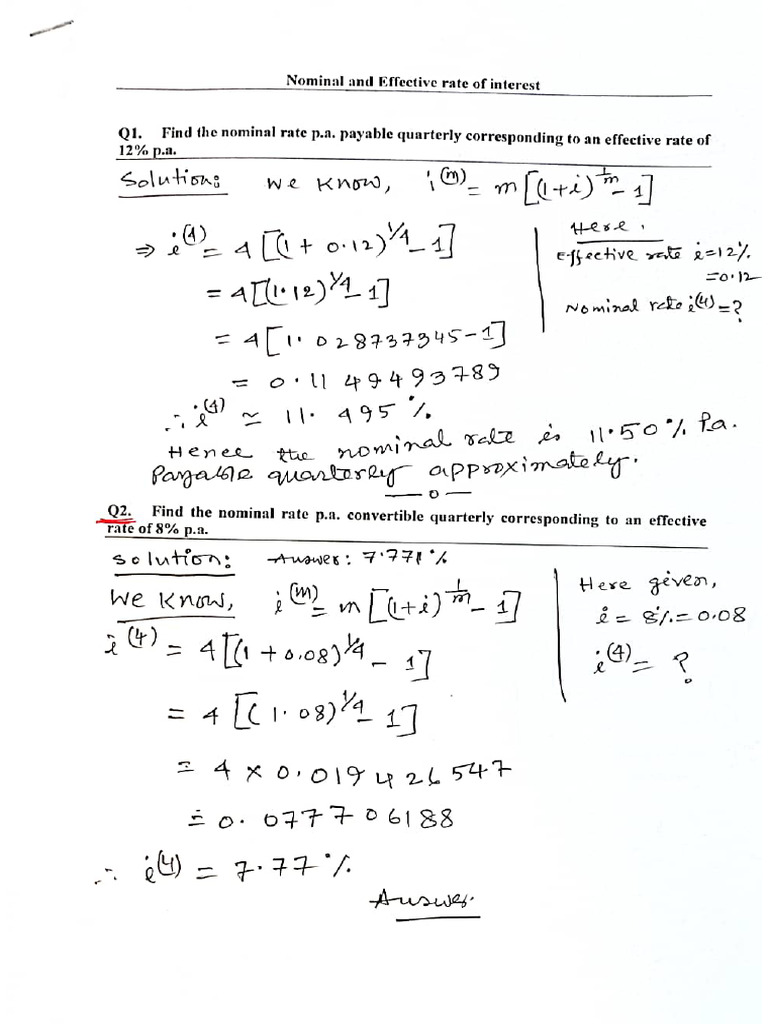 Nominal and Effective rate of interest
Q1. Find the nominal rate p.a. payable quarterly corresponding to an effective rate of
12% p.a.
Solution: We know, i^(m) = m[(1+i)^(1/m) - 1]
⇒ i^(4) = 4[(1 + 0.12)^(1/4) - 1]
= 4[(1.12)^(1/4) - 1]
= 4[1.028737345 - 1]
= 0.11 49493789
∴ i^(4) ≃ 11.495%
Here,
Effective rate i = 12%
= 0.12
Nominal rate i^(4) = ?
Hence the nominal rate is 11.50% P.a.
Payable quarterly approximately.
— 0 —
Q2. Find the nominal rate p.a. convertible quarterly corresponding to an effective
rate of 8% p.a.
Solution: Answer: 7.771%
We know, i^(m) = m[(1+i)^(1/m) - 1]
i^(4) = 4[(1 + 0.08)^(1/4) - 1]
= 4[(1.08)^(1/4) - 1]
= 4 × 0.019426547
= 0.077706188
∴ i^(4) = 7.77%
Here given,
i = 8% = 0.08
i^(4) = ?
Answer.